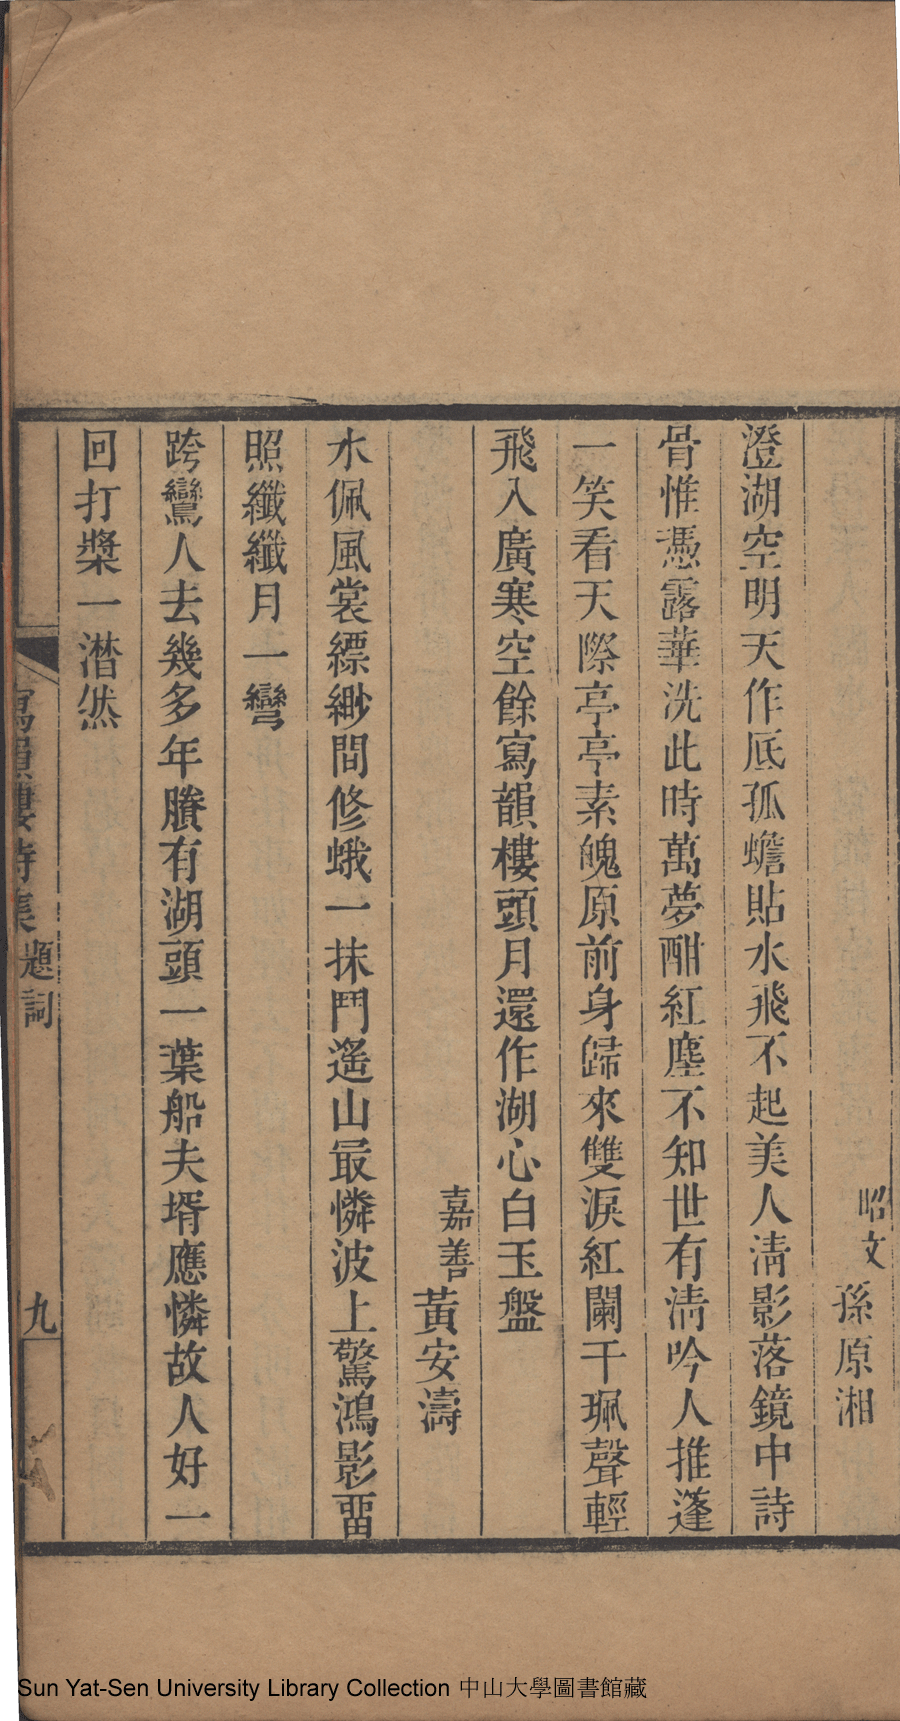 昭文孫原湘
澄湖空明天作底孤蟾貼水飛不起美人清影落鏡中詩
骨惟憑露華洗此時萬夢酣紅塵不知世有清吟人推蓬
一笑看天際亭亭素魄原前身歸來雙淚紅闌干珮聲輕
飛入廣寒空餘寫韻樓頭月還作湖心白玉盤
嘉善黃安濤
水佩風裳縹緲間修蛾一抹鬥遙山最憐波上驚鴻影畱
照纖纖月一彎
跨鸞人去幾多年賸有湖頭一葉船夫壻應憐故人好一
回打槳一潸然
寫韻樓詩集題詞
九
Sun Yat-Sen University Library Collection 中山大學圖書館藏